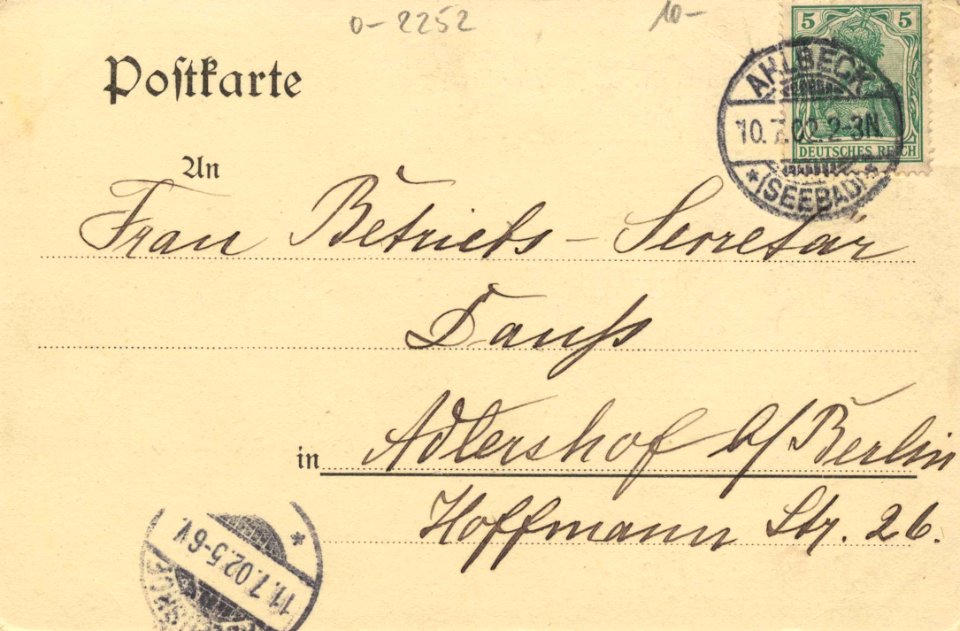 0-2252 10-
5 5
DEUTSCHES REICH
AHLBECK
10.7.02.2-3N
*(SEEBAD)*
Postkarte
An
Frau Betriebs-Secretär
Dauss
in Adlershof b/Berlin
Hoffmann Str. 26.
*
11.7.02.5-6V